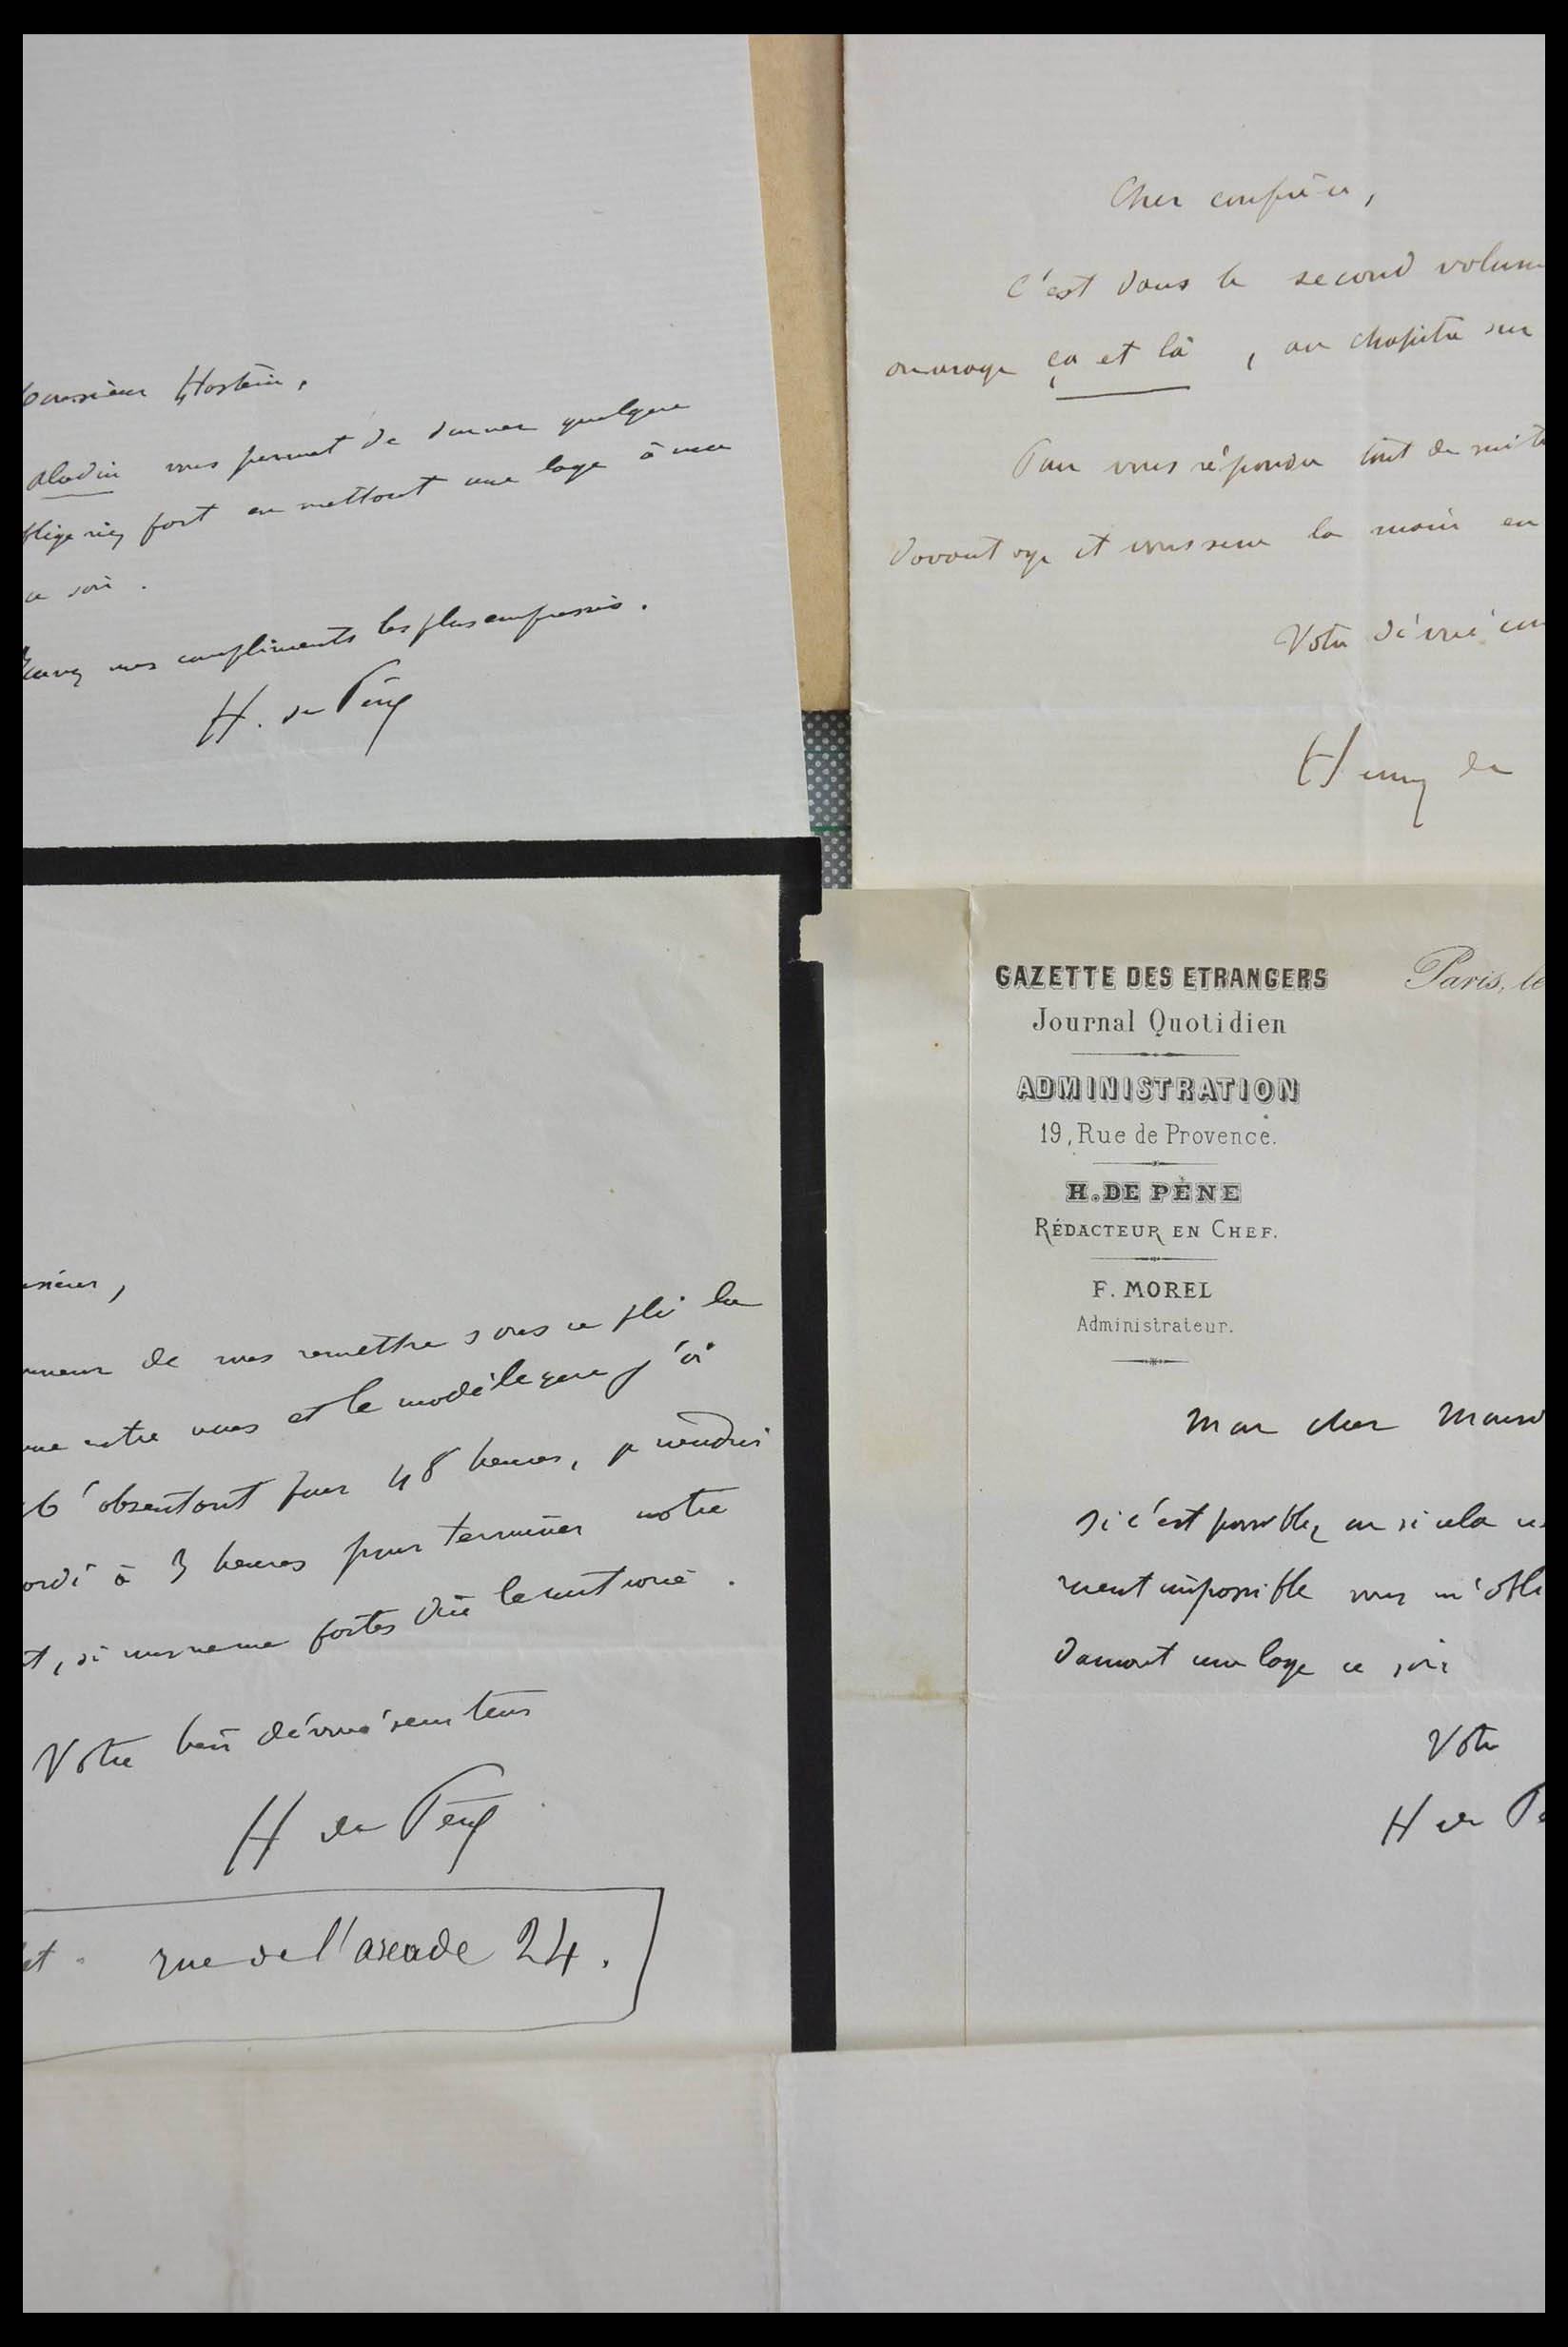 Monsieur Hostein,
Aladin vous permet de donner quelque
obligeriez fort en mettant une loge à ma
ce soir.
mes compliments les plus empressés.
H. de Pène
Cher confrère,
C'est dans le second volume
ouvrage ça et là, au chapitre sur
Pour vous répondre tout de suite
davantage et vous serre la main en
Votre dévoué
Henry de
sieur,
de vous remettre sous ce pli la
entre nous et le modèle que j'ai
M'absentant pour 48 heures, je viendrai
à 3 heures pour terminer notre
, si vous ne me faites dire le contraire.
Votre bien dévoué serviteur
H de Pène
rue de l'arcade 24.
GAZETTE DES ETRANGERS
Paris, le
Journal Quotidien
ADMINISTRATION
19, Rue de Provence.
H. DE PÈNE
RÉDACTEUR EN CHEF.
F. MOREL
Administrateur.
Mon cher
Si c'est possible, ou si cela
ment impossible vous m'obli
donnant une loge ce soir
Votre
H de Pè